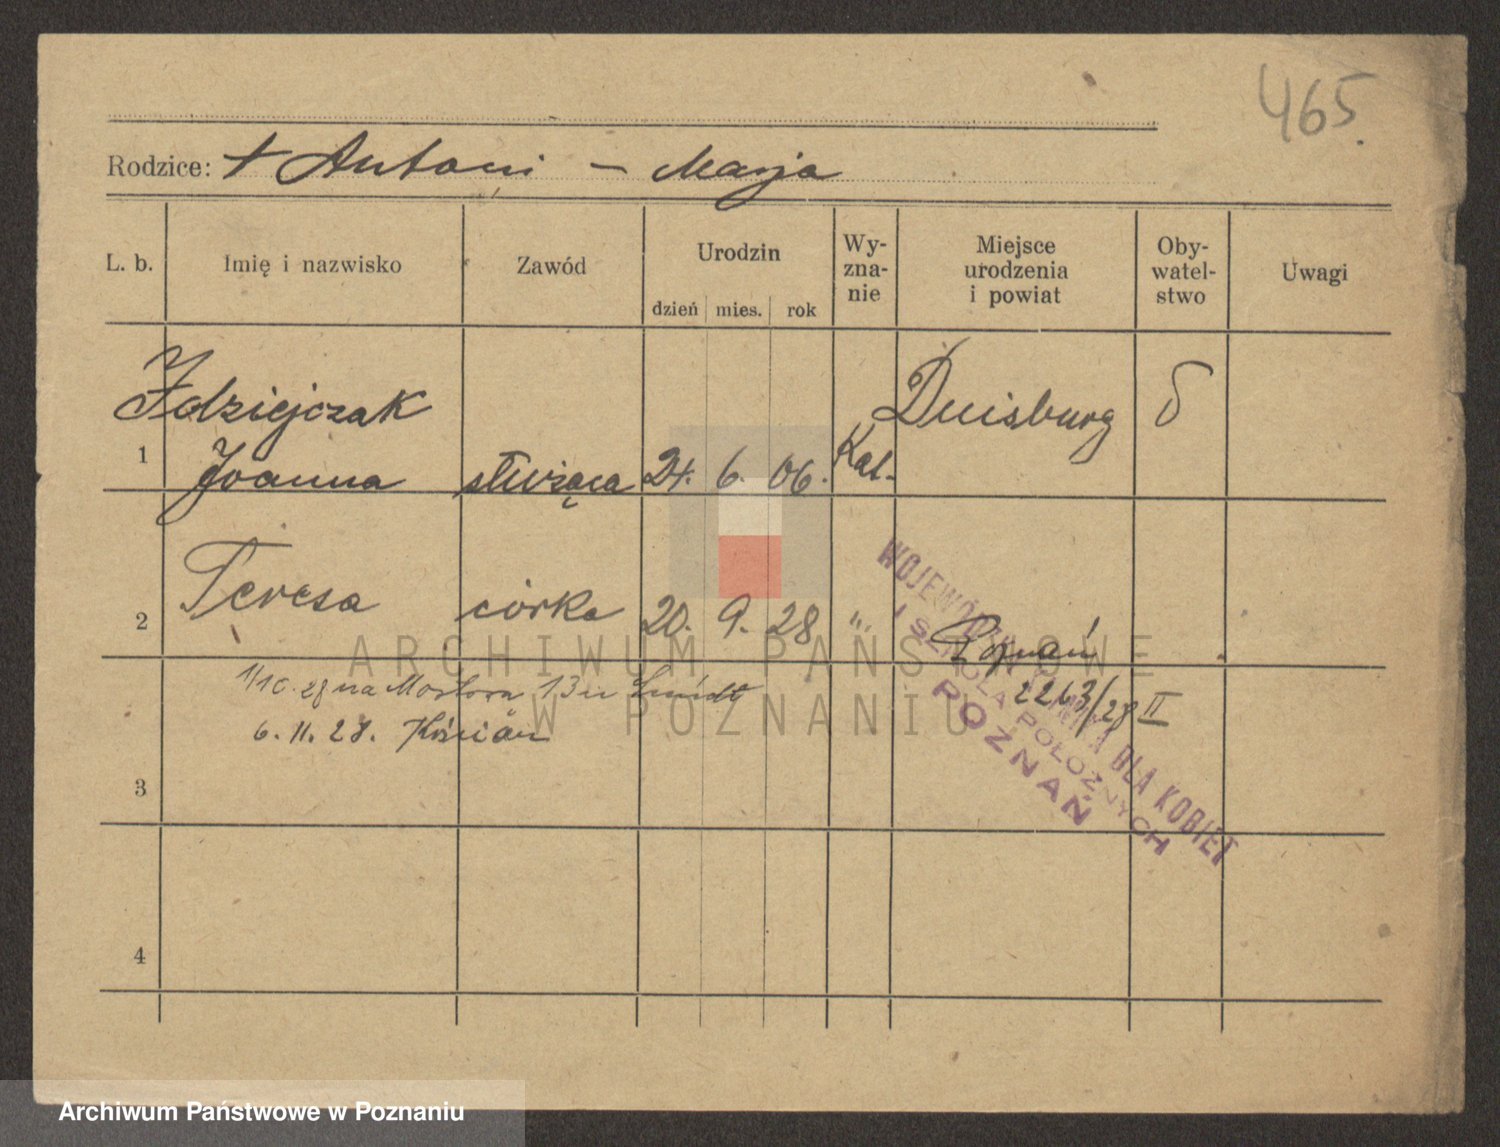 465.
Rodzice: + Antoni – Marja
L. b. Imię i nazwisko Zawód Urodzin dzień mies. rok Wy-zna-nie Miejsce urodzenia i powiat Oby-watel-stwo Uwagi
Idziejczak Duisburg
1 Joanna służąca 24. 6. 06. Kat.
2 Teresa córka 20. 9. 28 „ Poznań
2263/28 II
1/10. na 13
6. 11. 28. Kościan
3
4
WOJEWÓDZKA KLINIKA DLA KOBIET
I SZKOŁA POŁOŻNYCH
POZNAŃ
ARCHIWUM PAŃSTWOWE
W POZNANIU
Archiwum Państwowe w Poznaniu